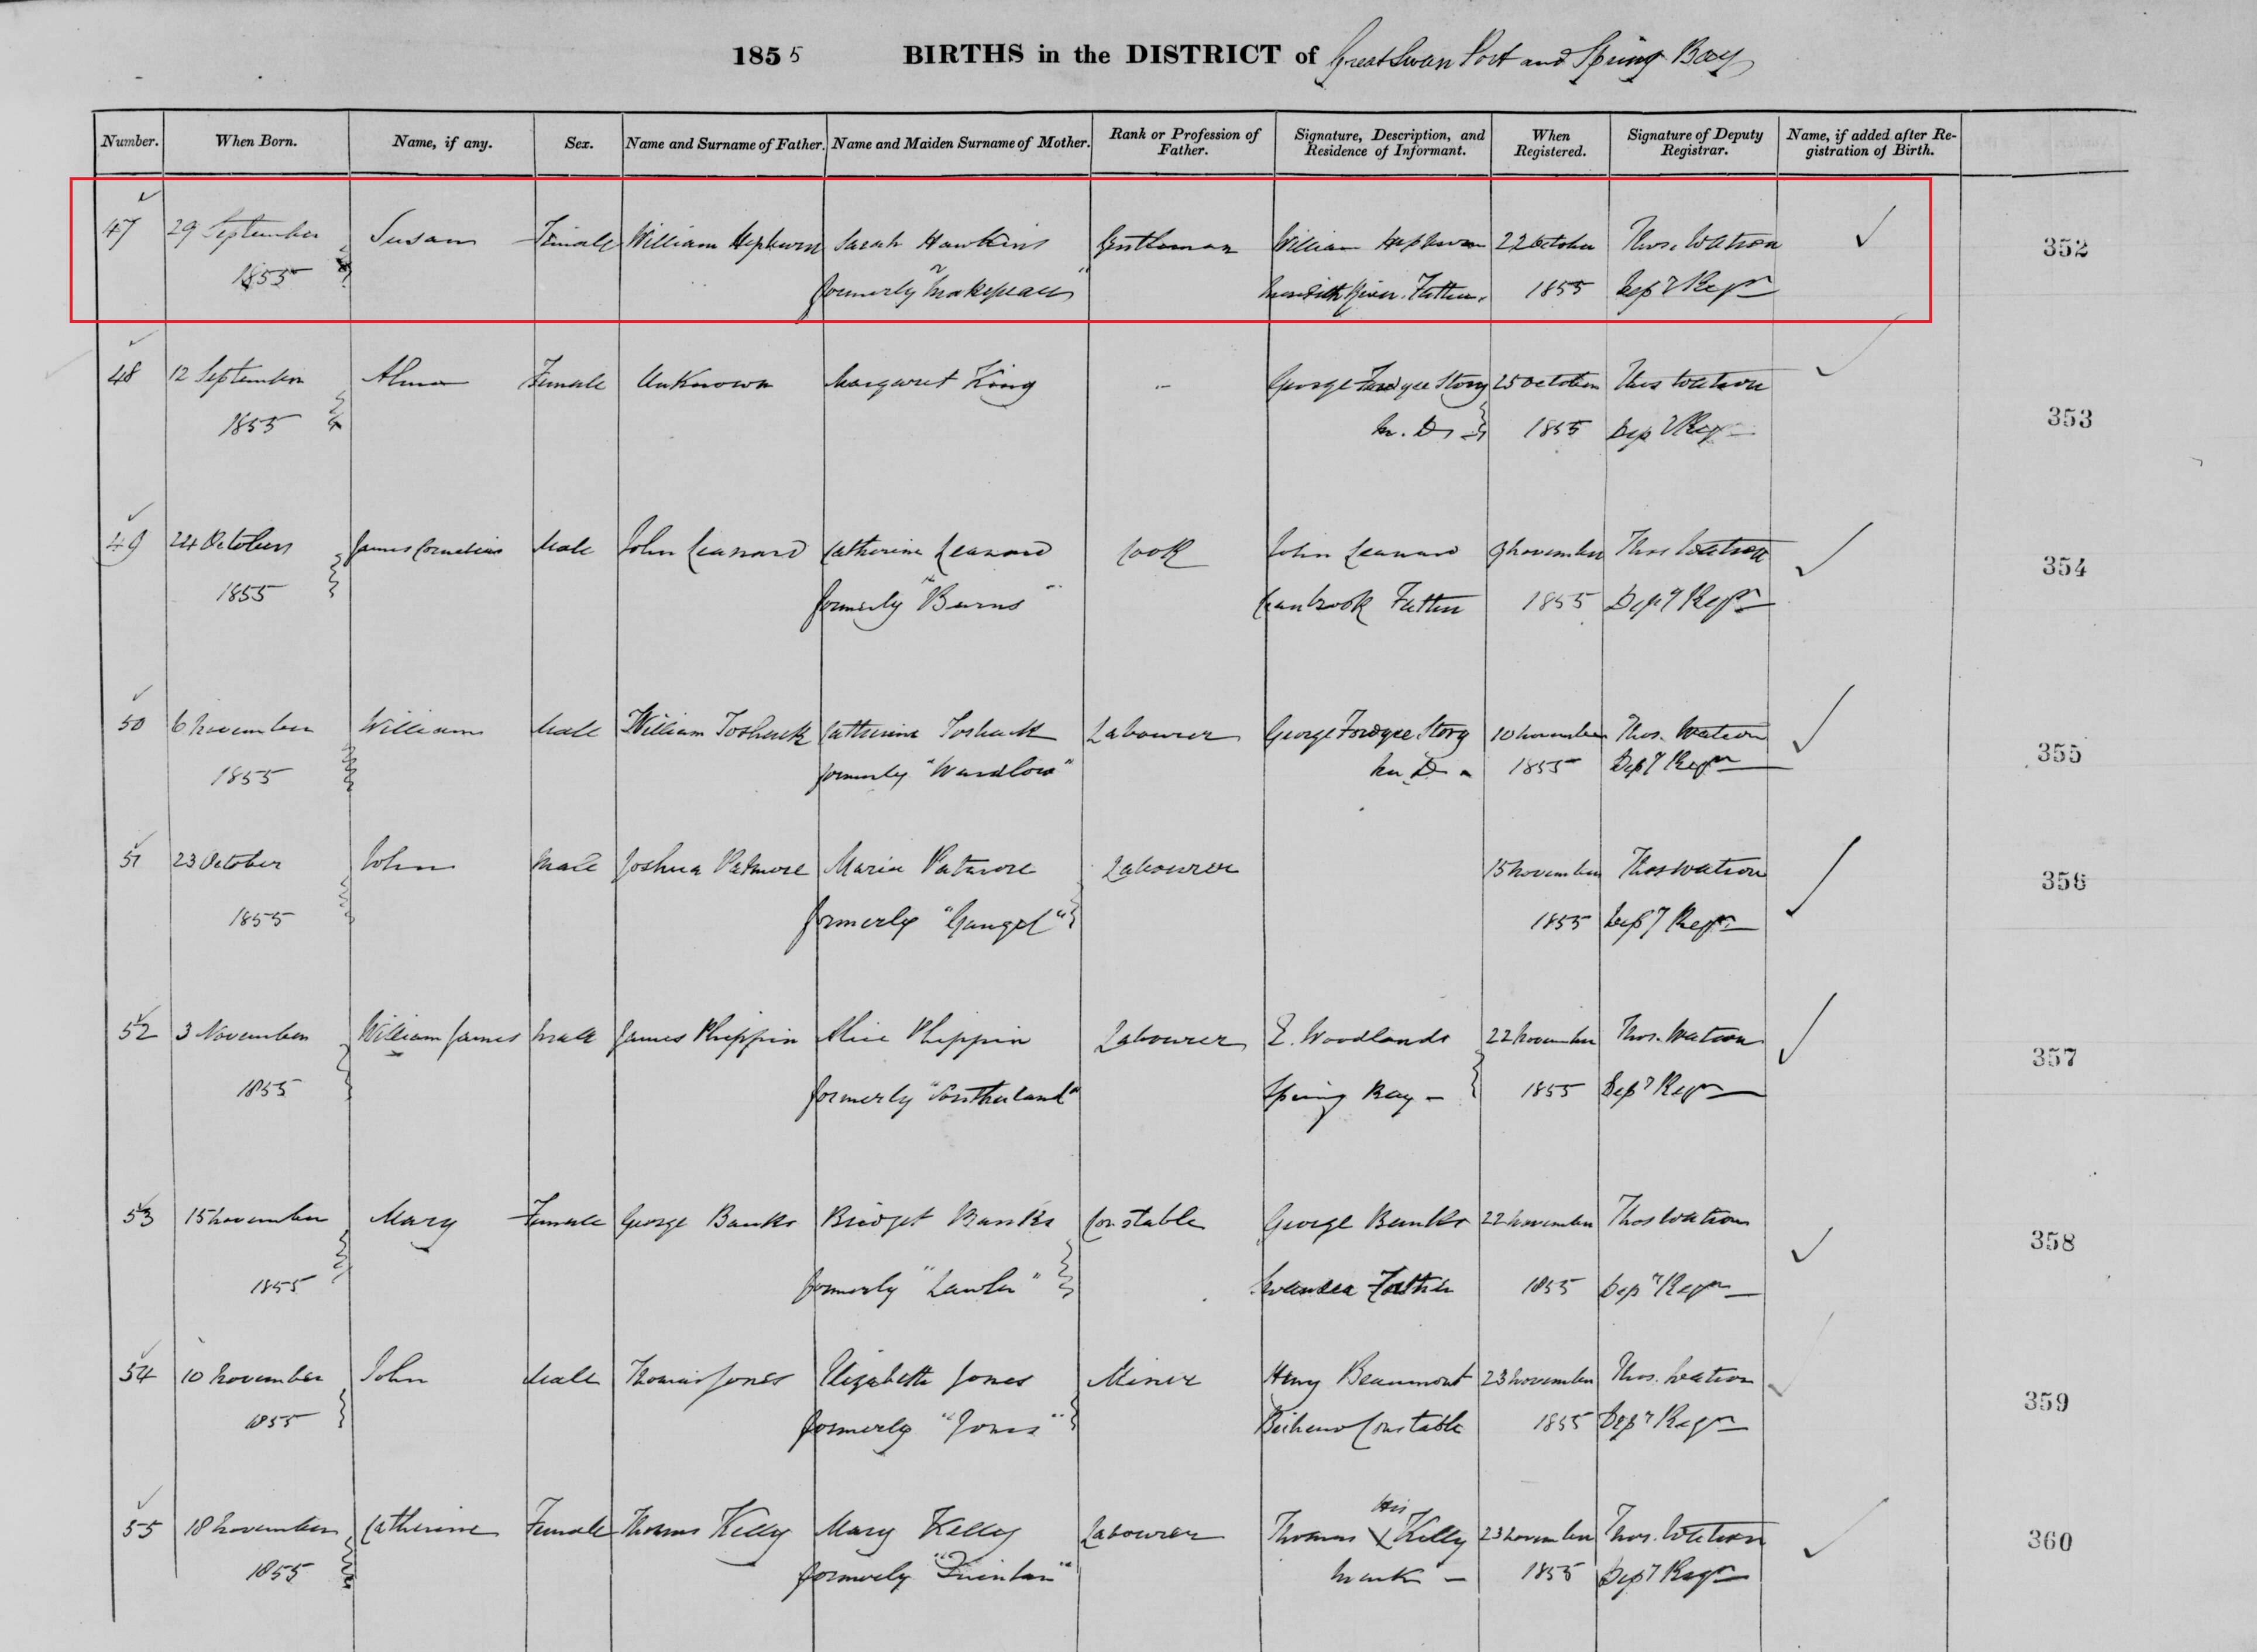 1855 BIRTHS in the DISTRICT of Great Swan Port and Spring Bay
Number. When Born. Name, if any. Sex. Name and Surname of Father. Name and Maiden Surname of Mother. Rank or Profession of Father. Signature, Description, and Residence of Informant. When Registered. Signature of Deputy Registrar. Name, if added after Registration of Birth.
47 29 September Susan Female William Hepburn Sarah Hawkins Gentleman William Hepburn 22 October Thos. Watson
1855 formerly "Makepeace" Meredith River. Father. 1855 Depy Regr
352
48 12 September Alma Female Unknown Margaret King – George Fordyce Story 25 October Thos Watson
1855 M. D. 1855 Depy Regr
353
49 24 October James Cornelius Male John Leanard Catherine Leanard Cook John Leanard 9 November Thos Watson
1855 formerly "Burns" Cranbrook Father 1855 Depy Regr
354
50 6 November William Male William Toshack Catherine Toshack Labourer George Fordyce Story 10 November Thos. Watson
1855 formerly "Wardlow" M. D. 1855 Depy Regr
355
51 23 October John Male Joshua Patmore Maria Patmore Labourer 15 November Thos Watson
1855 formerly "Gangel" 1855 Depy Regr
356
52 3 November William James Male James Phippin Alice Phippin Labourer E. Woodlands 22 November Thos. Watson
1855 formerly "Southerland" Spring Bay – 1855 Depy Regr
357
53 15 November Mary Female George Banks Bridget Banks Constable George Banks 22 November Thos Watson
1855 formerly "Lawler" Swansea Father 1855 Depy Regr
358
54 10 November John Male Thomas Jones Elizabeth Jones Miner Henry Beaumont 23 November Thos. Watson
1855 formerly "Jones" Bicheno Constable 1855 Depy Regr
359
His
55 18 November Catherine Female Thomas Kelly Mary Kelly Labourer Thomas X Kelly 23 November Thos. Watson
1855 formerly "Quinlan" Mark – 1855 Depy Regr
360